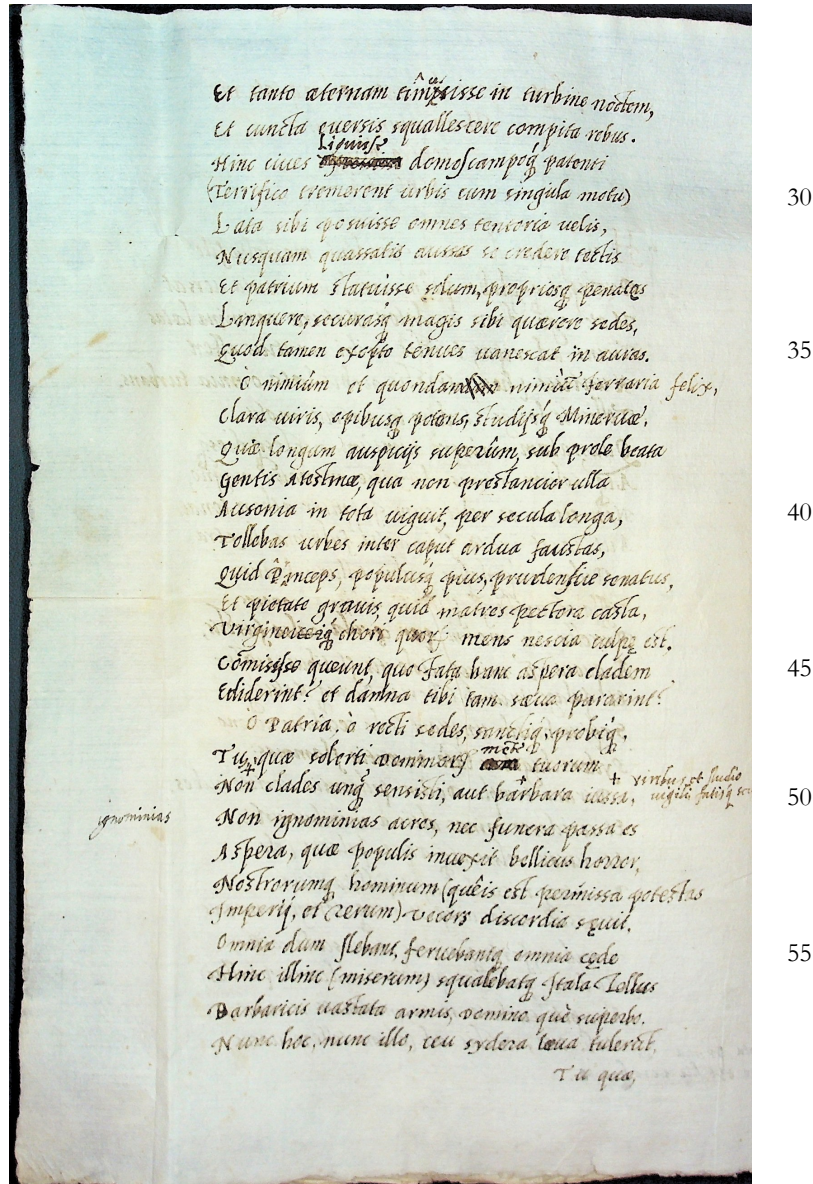 Et tanto æternam timuisse in turbine noctem,
Et cuncta euersis squallescere compita rebus.
Liquisse
Hinc ciues domos campoq́ patenti
(Terrifico tremerent urbis cum singula motu)
30
Lata sibi posuisse omnes tentoria uelis,
Nusquam quassatis ausses se credere tectis
Et patrium statuisse solum, propriosq́ penates
Linquere, securasq́ magis sibi quærere sedes,
Quod tamen excepto tenues uanescat in auras.
35
O nimiúm et quondam nimiū ferraria felix,
Clara uiris, opibusq́ potens, studijsq́ Mineruæ.
Quæ longum auspicijs superûm, sub prole beata
Gentis Atestinæ, qua non prestancior ulla
Ausonia in tota uiguit, per secula longa,
40
Tollebas urbes inter caput ardua faustas,
Quid Princeps, populusq́ pius, prudensue senatus,
Et pietate grauis, quid matres pectora casta,
Virgineiq́ chori, quorū mens nescia culpę est.
Cōmisisse queunt, quo fata hanc aspera cladem
45
Ediderint? et damna tibi tam sæua pararint?
O Patria, ò recti sedes, sanctiq́, probiq́,
mēte
Tu, quæ solerti Dominorū tuorum
+ viribus et studio
Non clades unq̄ sensisti, aut barbara iussa,
uigili, fatisq́
50
ignominias
Non ignominias acres, nec funera passa es
Aspera, quæ populis inuexit bellicus horror,
Nostrorumq́ hominum (quêis est permissa potestas
Imperij, et rerum) uecors discordia sęuit.
Omnia dum flebant, feruebantq́ omnia cęde
55
Hinc illinc (miserum) squalebatq́ Itala Tellus
Barbaricis uastata armis, Domino què superbo.
Nunc hoc, nunc illo, ceu sydera læua tulerāt.
Tu quæ,